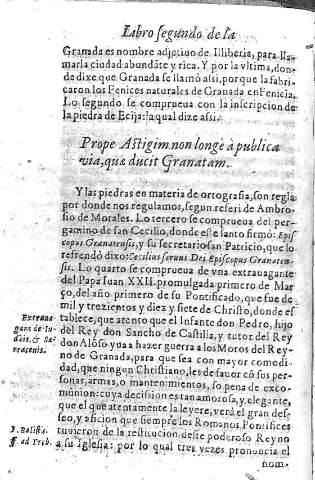 Libro segundo de la
Granada es nombre adjetiuo de Illiberia, para lla-
marla ciudad abundãte y rica. Y por la vltima, don-
de dixe que Granada se llamò assi, porque la fabri-
caron los Fenices naturales de Granada en Fenicia.
Lo segundo se comprueua con la inscripcion de
la piedra de Ecija: la qual dize assi.
Prope Astigim non longe à publica
via, quæ ducit Granatam.
Y las piedras en materia de ortografia, son regla
por donde nos regulamos, segun referi de Ambro-
sio de Morales. Lo tercero se comprueua del per-
gamino de san Cecilio, donde este santo firmò: Epis
copus Granatensis, y su secretario san Patricio, que lo
refrendò dixo: Cecilius seruus Dei Episcopus Granaten-
sis. Lo quarto se comprueua de vna extrauagante
del Papa Iuan XXII. promulgada primero de Mar
ço, del año primero de su Pontificado, que fue de
mil y trezientos y diez y siete de Christo, donde es-
tablece, que atento que el Infante don Pedro, hijo
del Rey don Sancho de Castilla, y tutor del Rey
don Alõso yua a hazer guerra a los Moros del Rey-
no de Granada, para que sea con mayor comodi-
dad, que ningun Christiano, les de fauor cõ sus per-
sonas, armas, o mantenimientos, so pena de exco-
munion: cuya decission es tan amorosa, y elegante,
que el que atentamente la leyere, verà el gran des-
seo, y aficion que siempre los Romanos Pontifices
tuuieron de la restitucion deste poderoso Reyno
a su Iglesia: por lo qual tres vezes pronuncia el
nom-
Extraua
gans de Iu-
dæis, & Sa-
racenis.